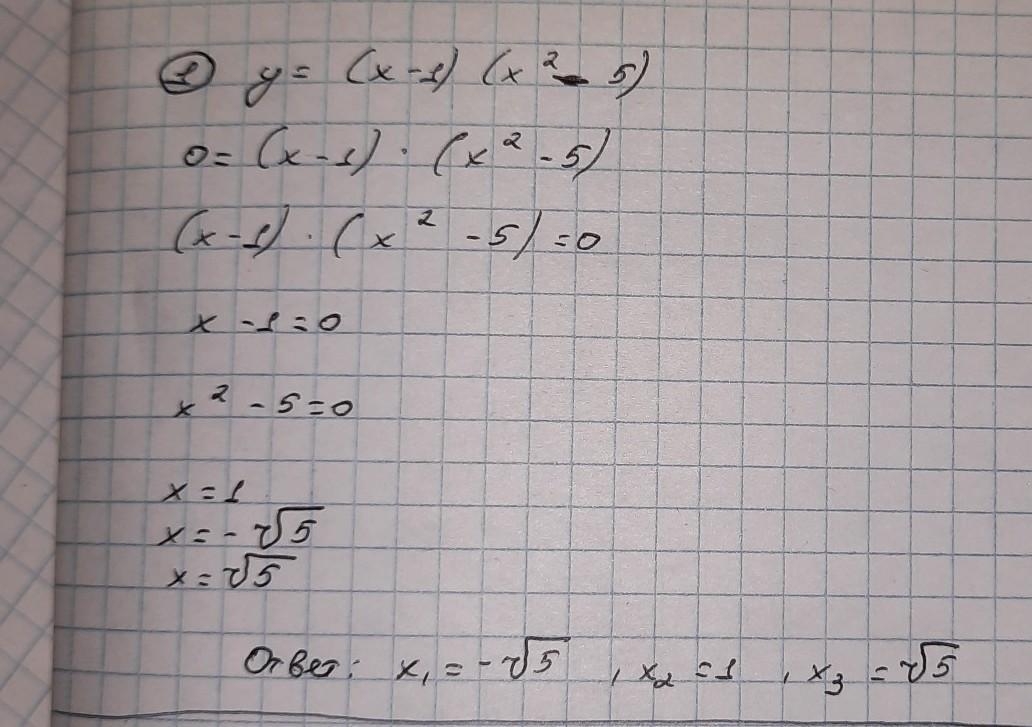 ① y = (x-1) (x² - 5)
0 = (x-1) · (x² - 5)
(x-1) · (x² - 5) = 0
x - 1 = 0
x² - 5 = 0
x = 1
x = - √5
x = √5
Ответ: x₁ = -√5 , x₂ = 1 , x₃ = √5